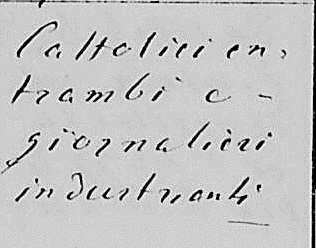 Cattolici en,
trambi e -
giornalieri
industrianti